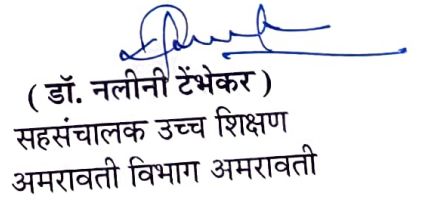 ( डॉ. नलीनी टेंभेकर )
सहसंचालक उच्च शिक्षण
अमरावती विभाग अमरावती